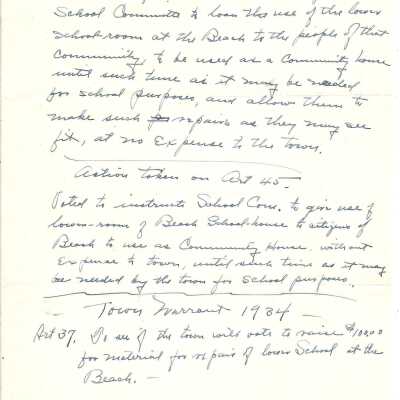 School Committee to loan the use of the lower
school-room at the Beach to the people of that
Community, to be used as a Community house
until such time as it may be needed
for school purposes, and allow them to
make such repairs as they may see
fit, at no Expense to the town.
Action taken on Art 45-
Voted to instruct School Com. to give use of
lower-room of Beach School-house to citizens of
Beach to use as Community House without
Expense to town, until such time as it may
be needed by the town for school purposes.
- Town Warrant 1934 -
Art 37. To see if the town will vote to raise
for material for repair of lower School at the
Beach. -